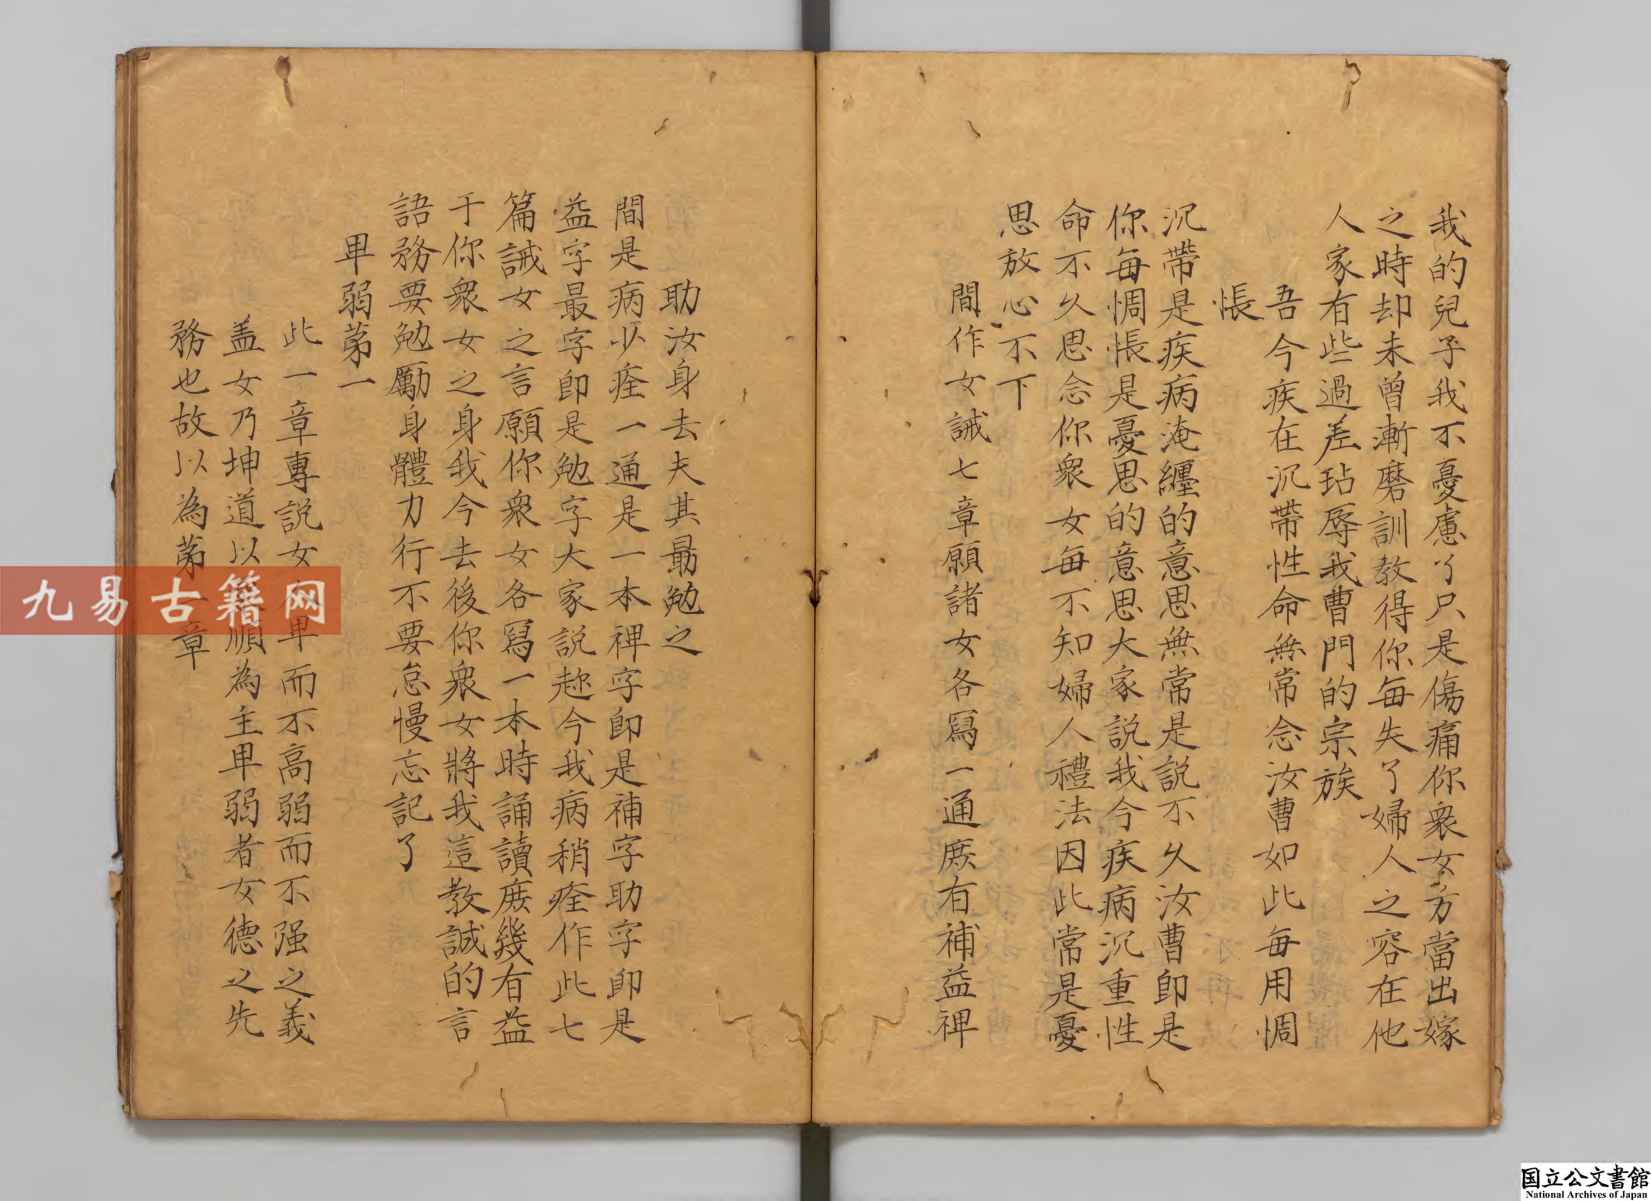 我的兒子我不憂慮了只是傷痛你衆女方當出嫁
之時却未曾漸磨訓教得你每失了婦人之容在他
人家有些過差玷辱我曹門的宗族
吾今疾在沉帶性命無常念汝曹如此每用惆
悵
沉帶是疾病淹纏的意思無常是説不久汝曹即是
你每惆悵是憂思的意思大家説我今疾病沉重性
命不久思念你衆女每不知婦人禮法因此常是憂
思放心不下
間作女誡七章願諸女各寫一通庶有補益裨
助汝身去夫其最勉之
間是病少痊一通是一本裨字即是補字助字即是
益字最字即是勉字大家説趂今我病稍痊作此七
篇誡女之言願你衆女各寫一本時誦讀庶幾有益
于你衆女之身我今去後你衆女將我這教誡的言
語務要勉勵身體力行不要怠慢忘記了
卑弱第一
此一章專説女卑而不高弱而不强之義
盖女乃坤道以順為主卑弱者女德之先
務也故以為第一章
九易古籍网
国立公文書館
National Archives of Japan